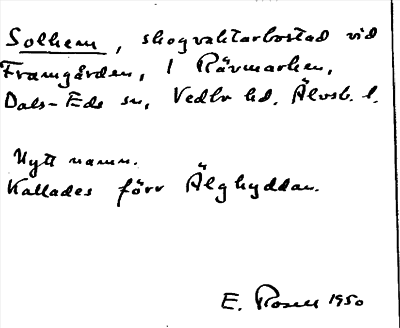 Solhem, skogvaktarbostad vid
Framgården, 1 Rävmarken,
Dals-Eds sn, Vedbo hd, Älvsb. l.
Nytt namn.
Kallades förr Älghyddan.
E. Rosell 1950